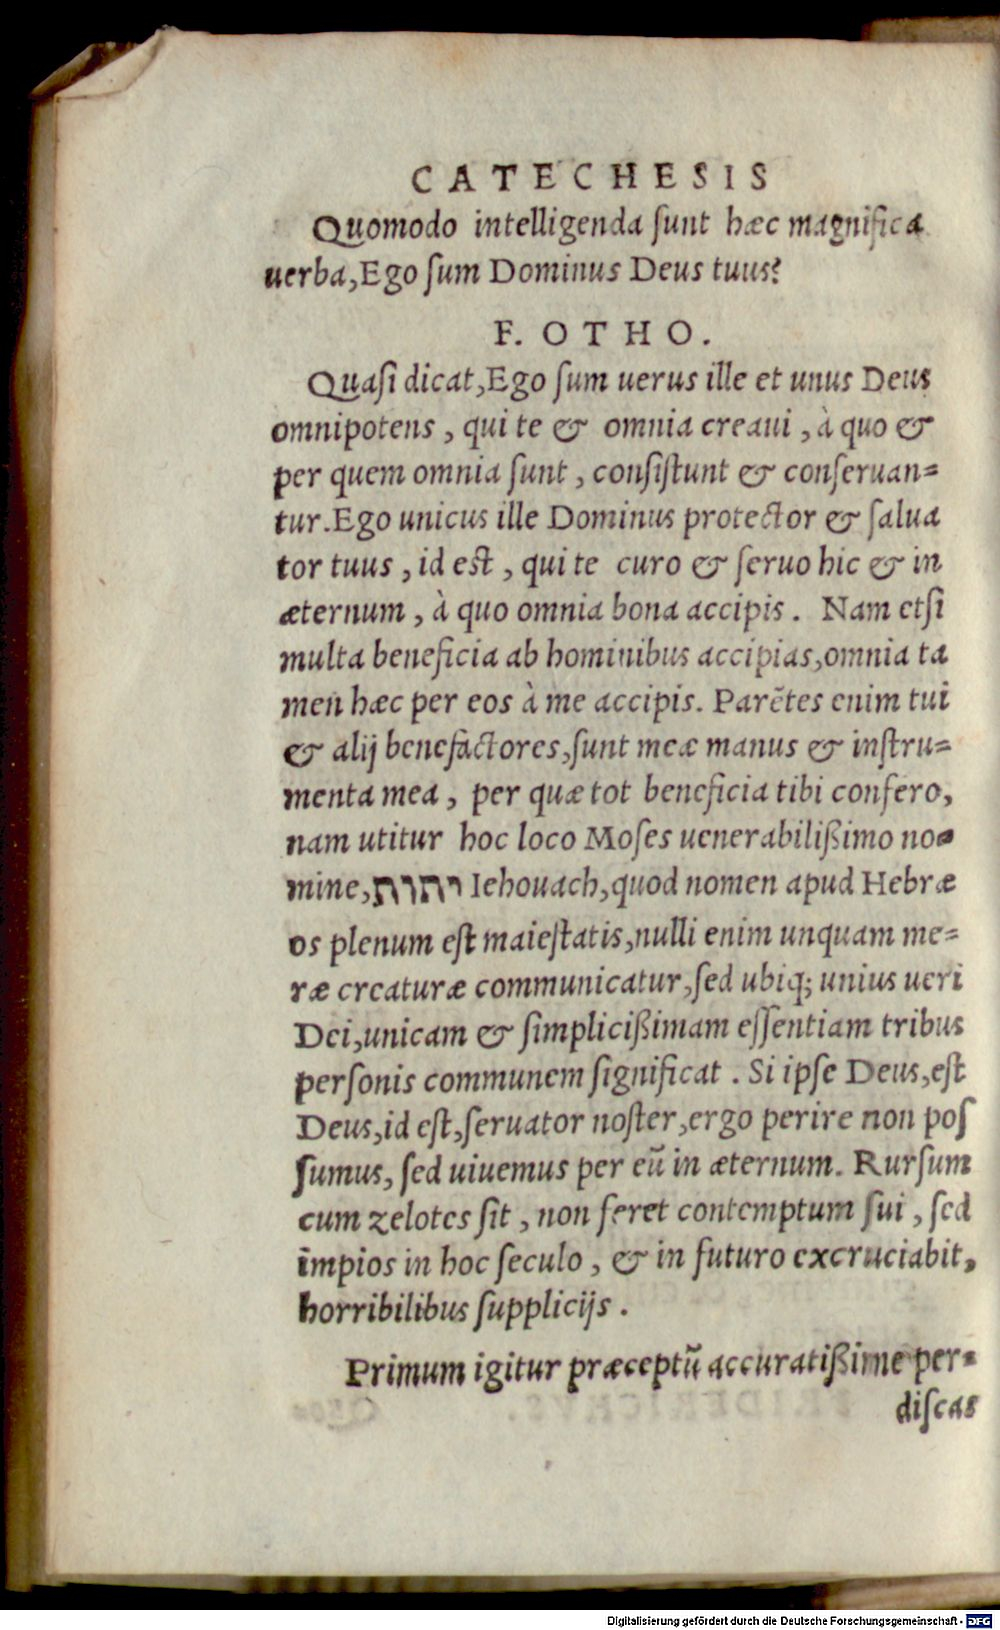 CATECHESIS
Quomodo intelligenda ſunt hæc magnifica
uerba, Ego ſum Dominus Deus tuus?
F. OTHO.
Quaſi dicat, Ego ſum uerus ille et unus Deus
omnipotens, qui te & omnia creaui, à quo &
per quem omnia ſunt, conſiſtunt & conſeruan=
tur. Ego unicus ille Dominus protector & ſalua
tor tuus, id eſt, qui te curo & ſeruo hic & in
æternum, à quo omnia bona accipis. Nam etſi
multa beneficia ab hominibus accipias, omnia ta
men hæc per eos à me accipis. Parẽtes enim tui
& alij benefactores, ſunt meæ manus & inſtru=
menta mea, per quæ tot beneficia tibi confero,
nam utitur hoc loco Moſes uenerabilißimo no=
mine, יהוה Iehouach, quod nomen apud Hebræ
os plenum eſt maieſtatis, nulli enim unquam me=
ræ creaturæ communicatur, ſed ubiq; unius ueri
Dei, unicam & ſimplicißimam eſſentiam tribus
perſonis communem ſignificat. Si ipſe Deus, eſt
Deus, id eſt, ſeruator noſter, ergo perire non poſ
ſumus, ſed uiuemus per eũ in æternum. Rurſum
cum zelotes ſit, non feret contemptum ſui, ſed
impios in hoc ſeculo, & in futuro excruciabit,
horribilibus ſupplicijs.
Primum igitur præceptũ accuratißime per=
diſcas
Digitalisierung gefördert durch die Deutsche Forschungsgemeinschaft - DFG